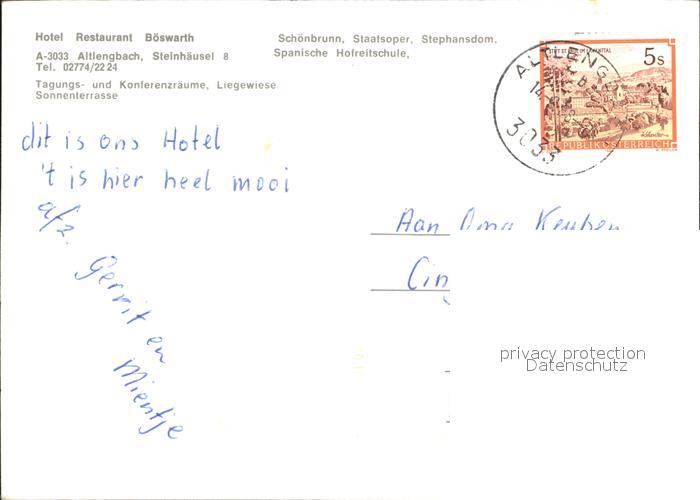 Hotel Restaurant Böswarth
A-3033 Altlengbach, Steinhäusel 8
Tel. 02774/22 24
Tagungs- und Konferenzräume, Liegewiese
Sonnenterrasse
Schönbrunn, Staatsoper, Stephansdom,
Spanische Hofreitschule,
5 S
REPUBLIK ÖSTERREICH
3033
dit is ons Hotel
't is hier heel mooi
afz.
Gerrit en
Mientje
Aan Oma
privacy protection
Datenschutz